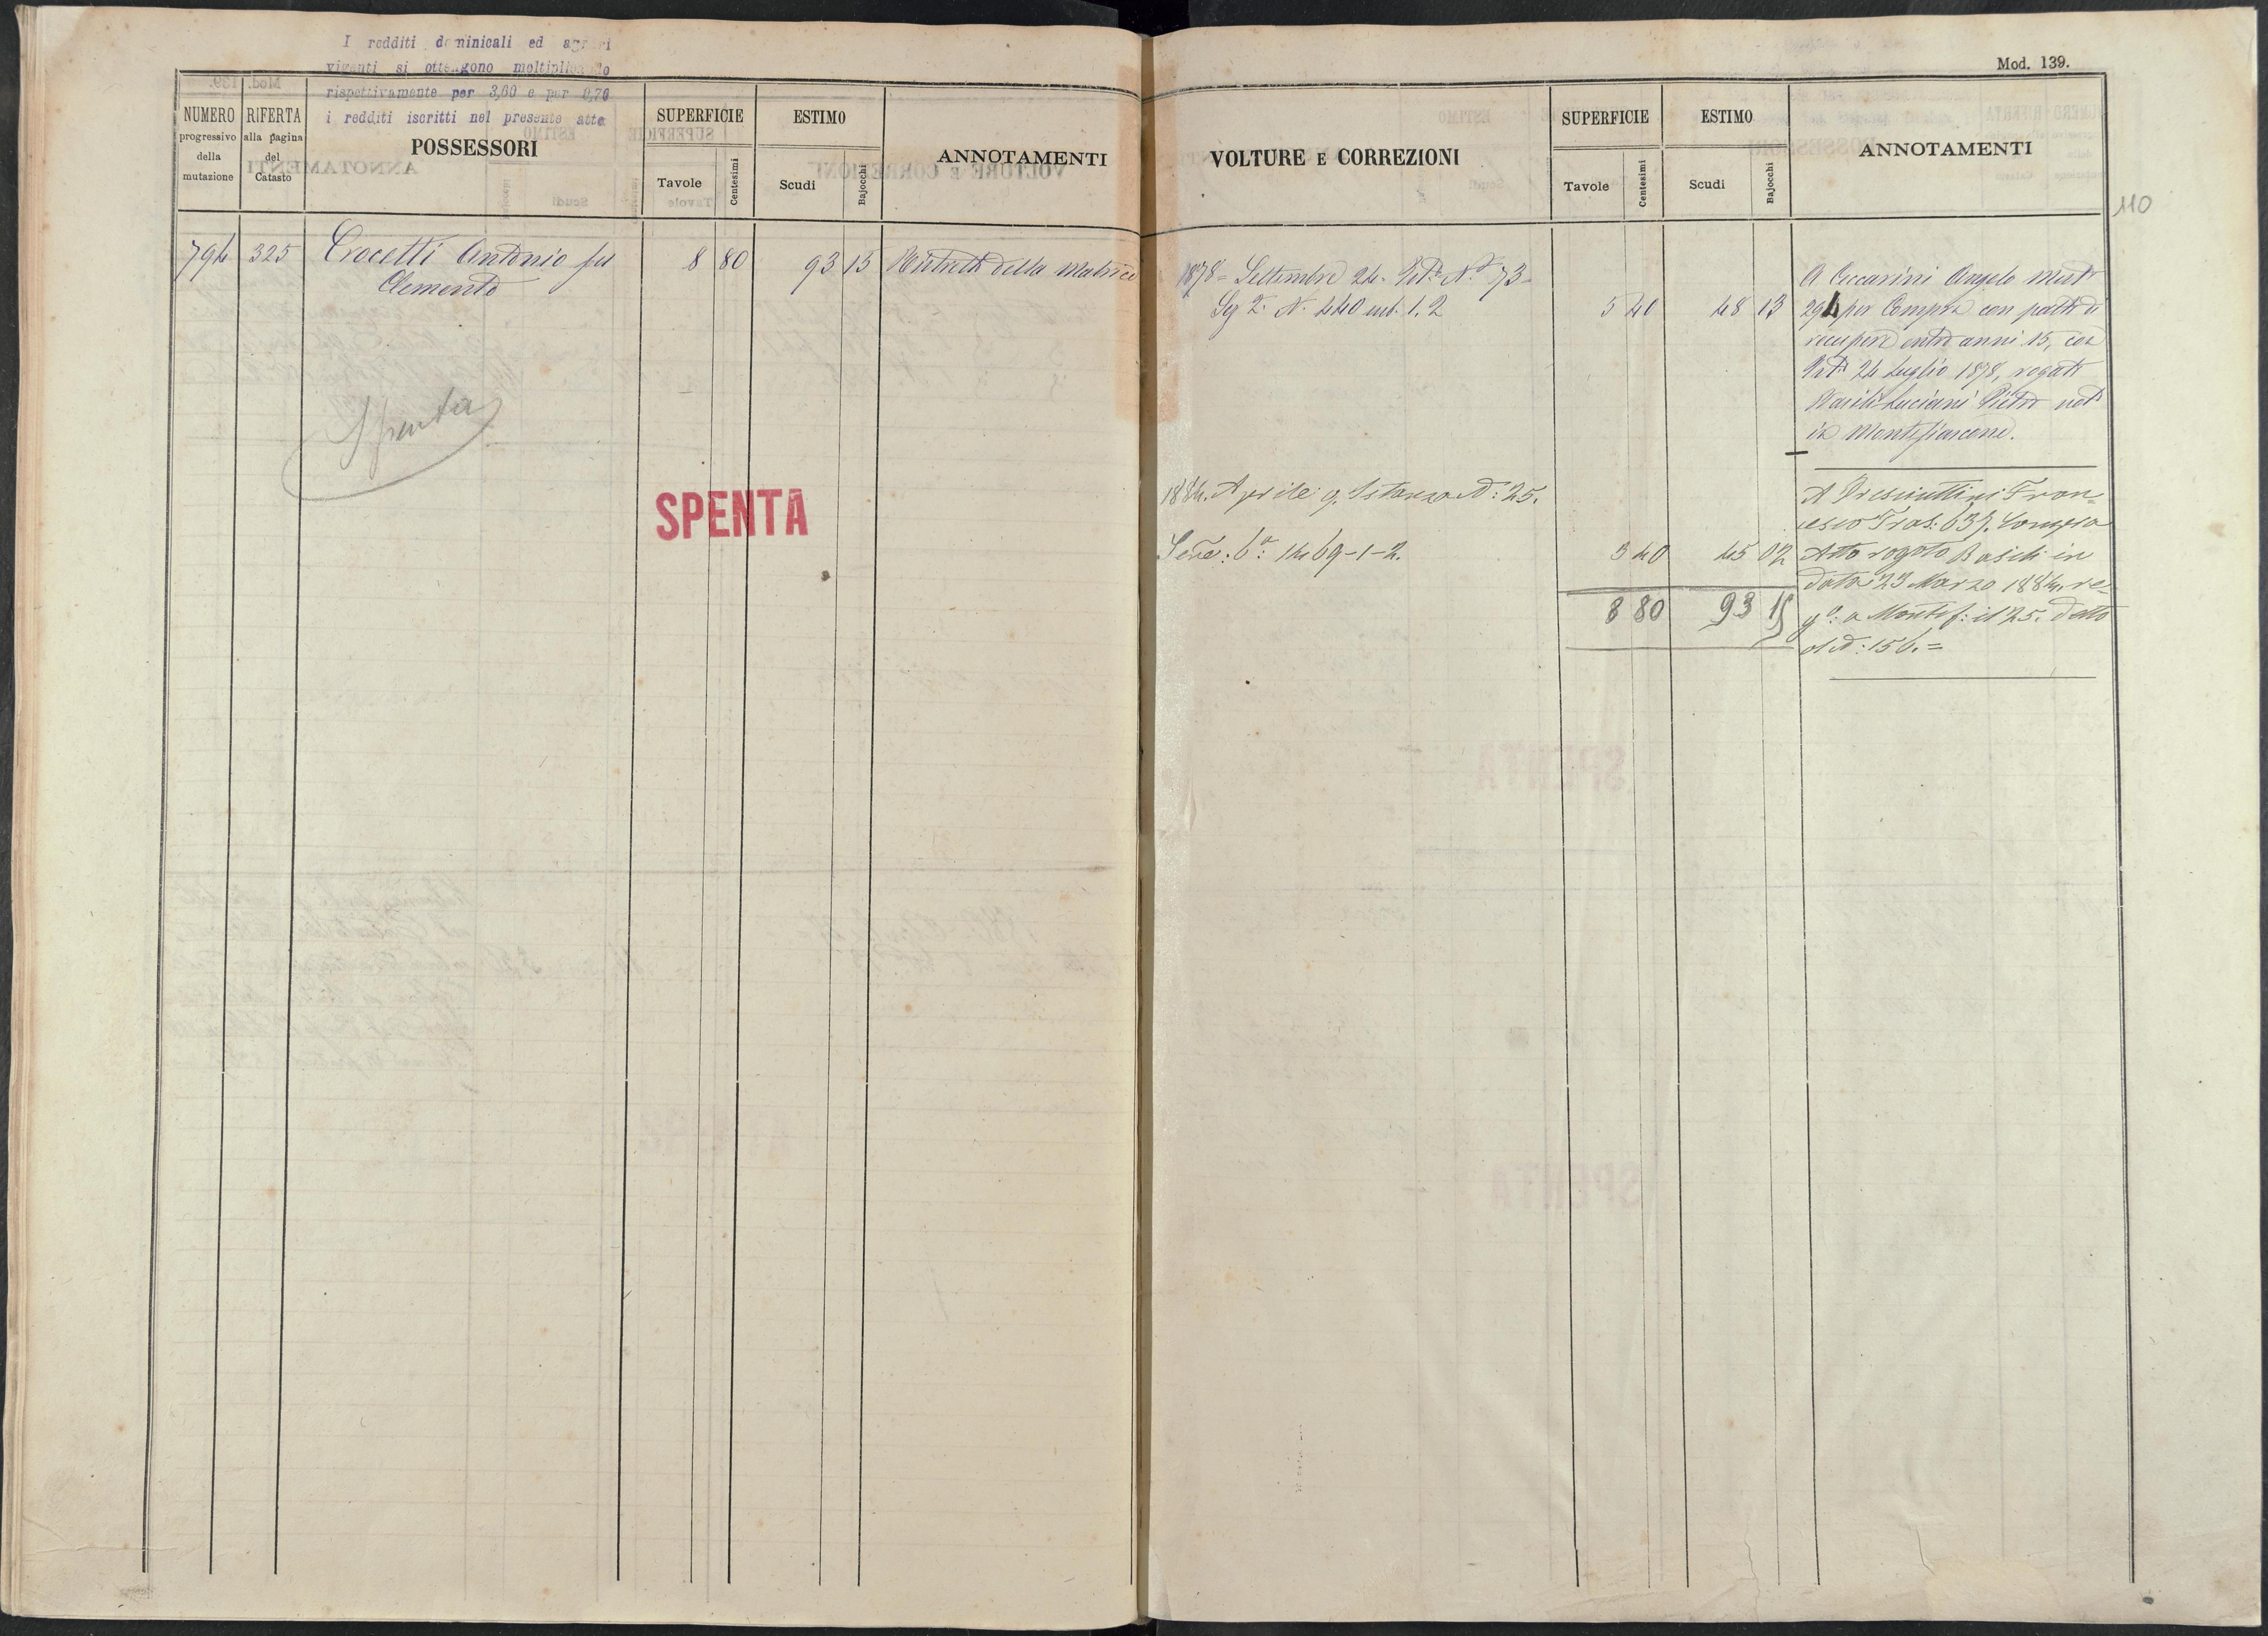 I redditi dominicali ed agrari
vigenti si ottengono moltiplicando
rispettivamente per 3,60 e per 0,70
i redditi iscritti nel presente atto
NUMERO
progressivo
della
mutazione
RIFERTA
alla pagina
del
Catasto
POSSESSORI
SUPERFICIE
Tavole
Centesimi
ESTIMO
Scudi
Bajocchi
ANNOTAMENTI
794 325 Crocetti Antonio fu 8 80 93 15 della Matrice
Clemente
Spenta
SPENTA
Mod. 139.
VOLTURE E CORREZIONI
SUPERFICIE
Tavole
Centesimi
ESTIMO
Scudi
Bajocchi
ANNOTAMENTI
110
1878 = Settembre 24. N.° 73 =
N. 440 sub. 1. 2 5 40 48 13
A Ceccarini Angelo
294 per Compra con patto di
entro anni 15, con
24 Luglio 1878, rogato
Luciani Pietro not°
in Montefiascone.
1884. Aprile 9. Istanza N: 25.
Sez: 6ª: 1469-1-2. 3 40 45 02
8 80 93 15
A Presciuttini Fran=
cesco Tras: 637. Compra
Atto rogato Baschi in
data 23 Marzo 1884. re=
g°: a Montef: il 25. detto
al N: 156. =